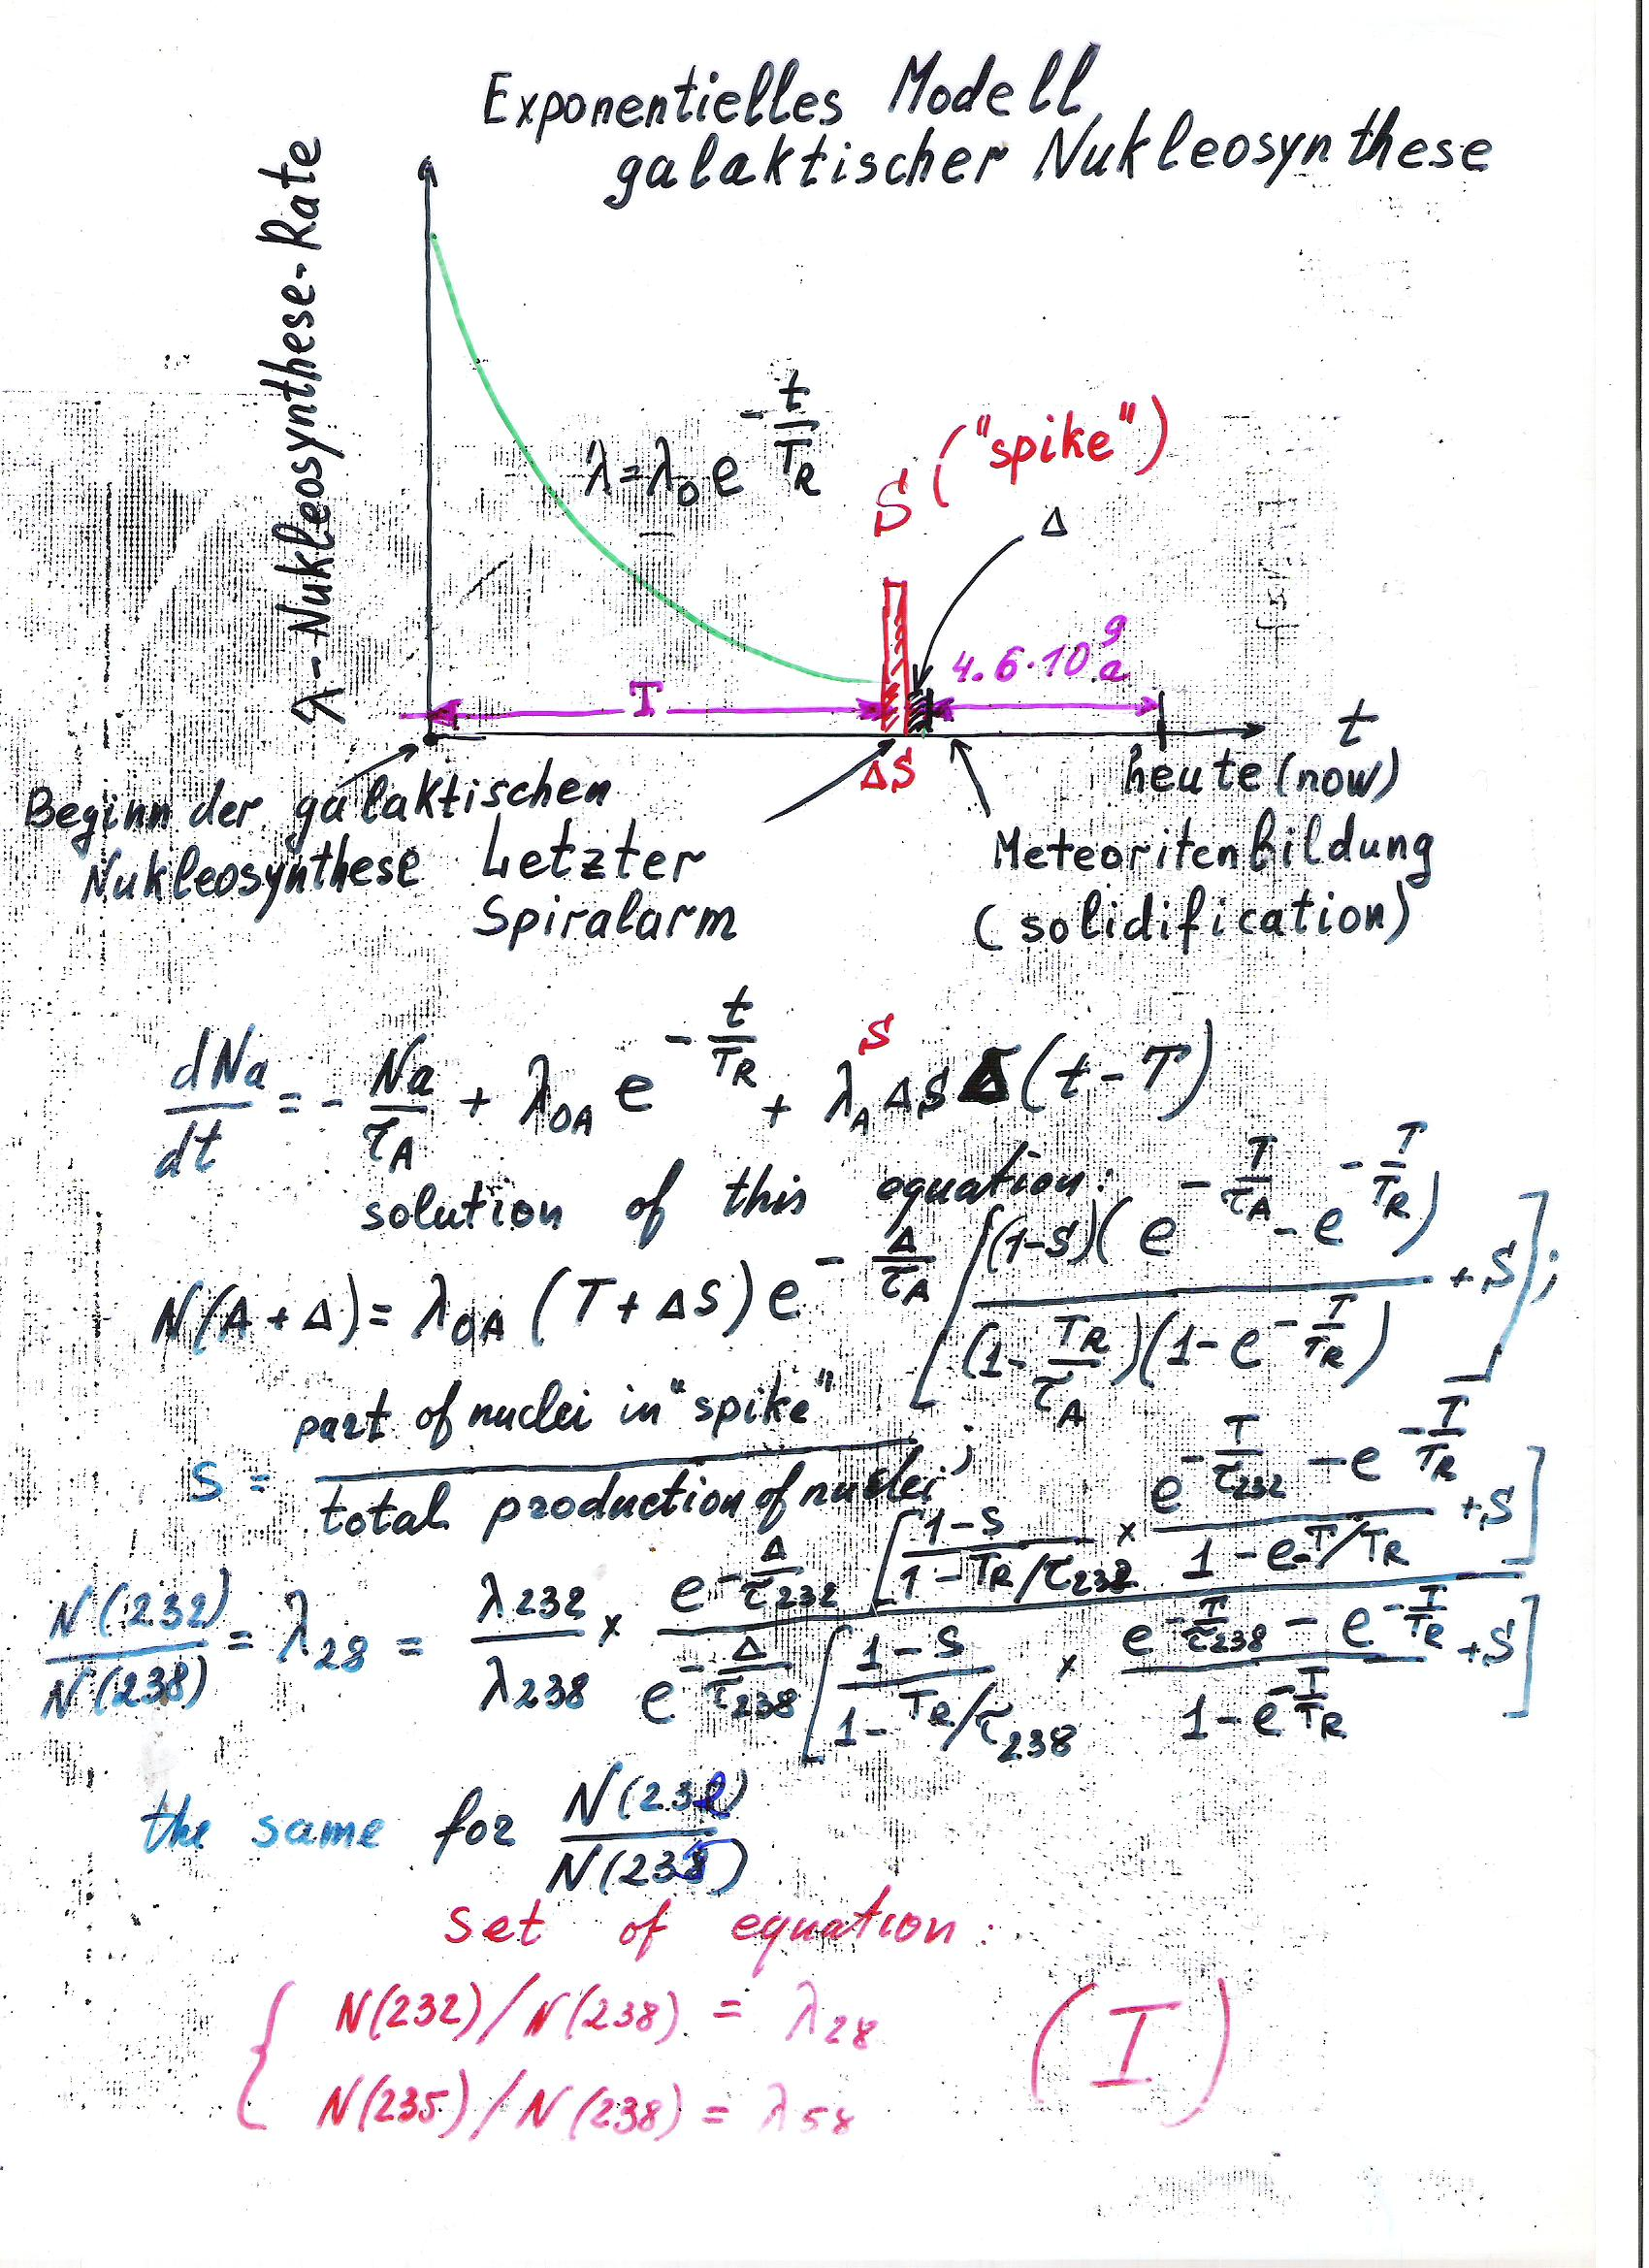 Exponentielles Modell
galaktischer Nukleosynthese
λ-Nukleosynthese-Rate
λ=λ₀e^(-t/T_R)
S ("spike")
Δ
T
4.6·10⁹a
t
ΔS
heute (now)
Beginn der galaktischen
Nukleosynthese
Letzter
Spiralarm
Meteoritenbildung
(solidification)
dNa/dt = - Na/τ_A + λ_OA e^(-t/T_R) + λ_A^S ΔS Δ(t-T)
solution of this equation:
N(A+Δ)= λ_OA (T+ΔS) e^(-Δ/τ_A) [(1-S)(e^(-T/τ_A) - e^(-T/T_R)) / (1-T_R/τ_A)(1-e^(-T/T_R)) + S];
S = part of nuclei in "spike" / total production of nuclei ;
N(232)/N(238) = λ₂₈ = λ232/λ238 × e^(-Δ/τ232) [1-S / 1-T_R/τ232 × e^(-T/τ232) - e^(-T/T_R) / 1-e^(-T/T_R) + S] / e^(-Δ/τ238) [1-S / 1-T_R/τ238 × e^(-T/τ238) - e^(-T/T_R) / 1-e^(-T/T_R) + S]
the same for N(232)/N(238)
set of equation:
N(232)/N(238) = λ₂₈
(I)
N(235)/N(238) = λ₅₈